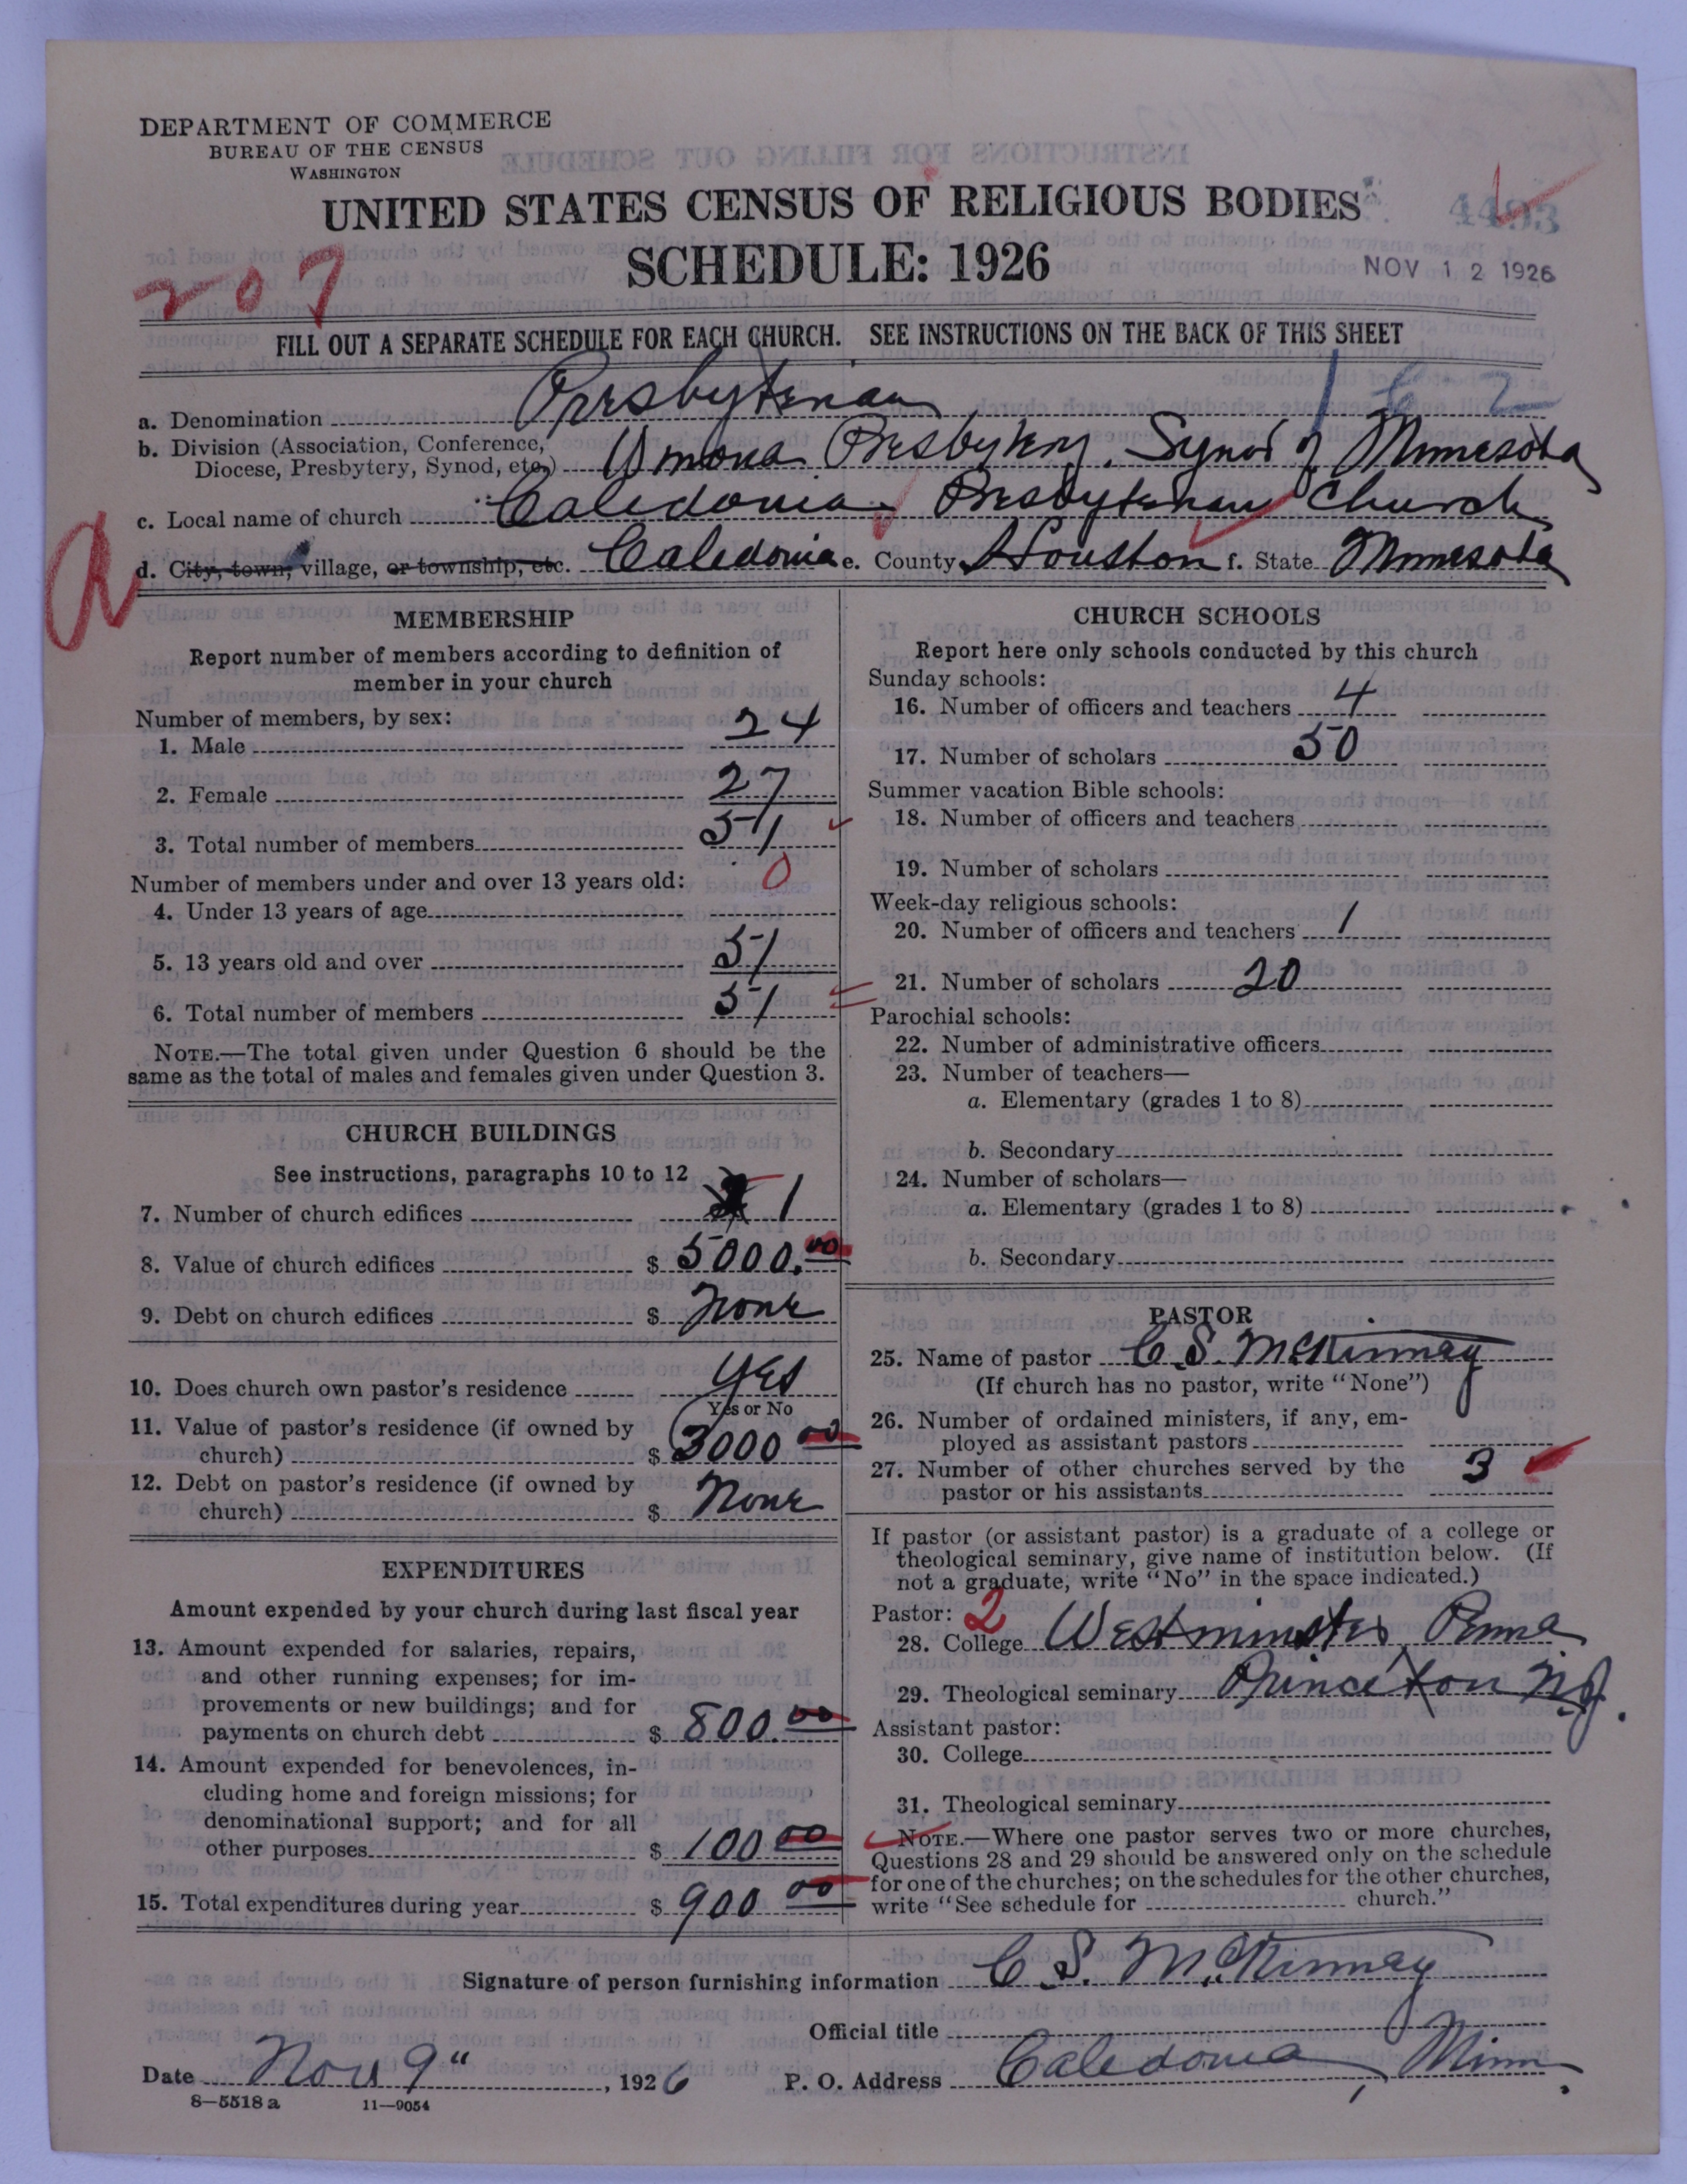 DEPARTMENT OF COMMERCE
BUREAU OF THE CENSUS
WASHINGTON
UNITED STATES CENSUS OF RELIGIOUS BODIES
SCHEDULE: 1926
4493
NOV 12 1926
207
FILL OUT A SEPARATE SCHEDULE FOR EACH CHURCH. SEE INSTRUCTIONS ON THE BACK OF THIS SHEET
a. Denomination Presbyterian
b. Division (Association, Conference,
Diocese, Presbytery, Synod, etc.) Winona Presbytery. Synod of Minnesota
c. Local name of church Caledonia Presbyterian Church
d. City, town, village, or township, etc. Caledonia e. County Houston f. State Minnesota
MEMBERSHIP
Report number of members according to definition of
member in your church
Number of members, by sex:
1. Male 24
2. Female 27
3. Total number of members 51
Number of members under and over 13 years old:
4. Under 13 years of age 0
5. 13 years old and over 51
6. Total number of members 51
NOTE.—The total given under Question 6 should be the
same as the total of males and females given under Question 3.
CHURCH BUILDINGS
See instructions, paragraphs 10 to 12
7. Number of church edifices 1
8. Value of church edifices $ 5000.00
9. Debt on church edifices $ None
10. Does church own pastor's residence Yes
Yes or No
11. Value of pastor's residence (if owned by
church) $ 3000 00
12. Debt on pastor's residence (if owned by
church) $ None
EXPENDITURES
Amount expended by your church during last fiscal year
13. Amount expended for salaries, repairs,
and other running expenses; for im-
provements or new buildings; and for
payments on church debt $ 800.00
14. Amount expended for benevolences, in-
cluding home and foreign missions; for
denominational support; and for all
other purposes $ 100 00
15. Total expenditures during year $ 900 00
CHURCH SCHOOLS
Report here only schools conducted by this church
Sunday schools:
16. Number of officers and teachers 4
17. Number of scholars 50
Summer vacation Bible schools:
18. Number of officers and teachers
19. Number of scholars
Week-day religious schools:
20. Number of officers and teachers 1
21. Number of scholars 20
Parochial schools:
22. Number of administrative officers
23. Number of teachers—
a. Elementary (grades 1 to 8)
b. Secondary
24. Number of scholars—
a. Elementary (grades 1 to 8)
b. Secondary
PASTOR
25. Name of pastor C. S. McKinney
(If church has no pastor, write "None")
26. Number of ordained ministers, if any, em-
ployed as assistant pastors
27. Number of other churches served by the
pastor or his assistants 3
If pastor (or assistant pastor) is a graduate of a college or
theological seminary, give name of institution below. (If
not a graduate, write "No" in the space indicated.)
Pastor: 2
28. College Westminster, Penna
29. Theological seminary Princeton N.J.
Assistant pastor:
30. College
31. Theological seminary
NOTE.—Where one pastor serves two or more churches,
Questions 28 and 29 should be answered only on the schedule
for one of the churches; on the schedules for the other churches,
write "See schedule for church."
Signature of person furnishing information C. S. McKinney
Official title
Date Nov 9", 1926 P. O. Address Caledonia, Minn.
8—5518 a 11—9054